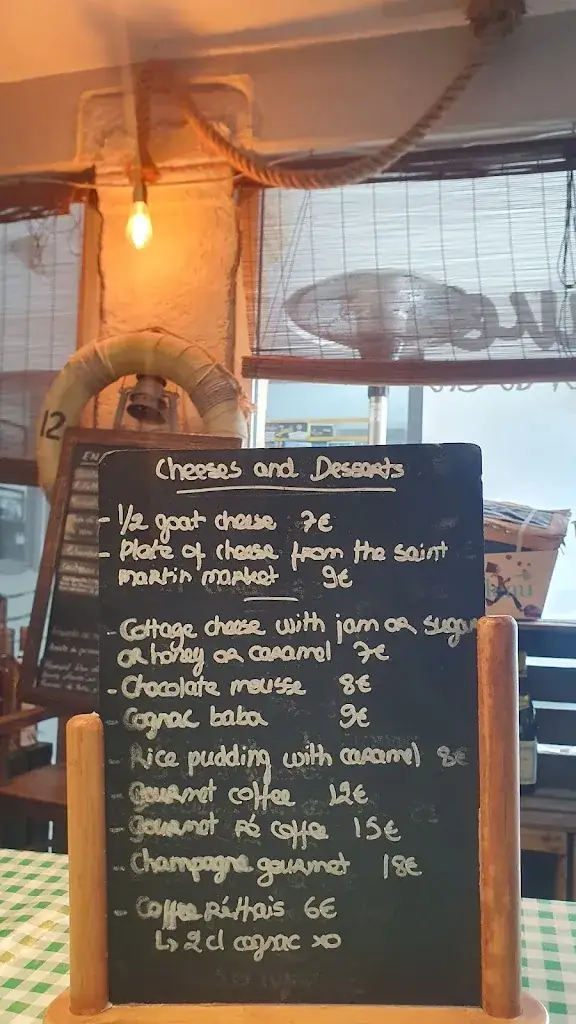 12
EN
Cheeses and Desserts
- 1/2 goat cheese 7€
- Plate of cheese from the saint
martin market 9€
- Cottage cheese with jam or sugar
or honey or caramel 7€
- Chocolate mousse 8€
- Cognac baba 9€
- Rice pudding with caramel 8€
- Gourmet coffee 12€
- Gourmet Ré coffee 15€
- Champagne gourmet 18€
- Coffee Réthais 6€
↳ 2 cl cognac XO